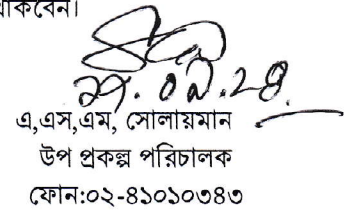 থাকবেন।
এ,এস,এম, সোলায়মান
উপ প্রকল্প পরিচালক
ফোন:০২-৪১০১০৩৪৩